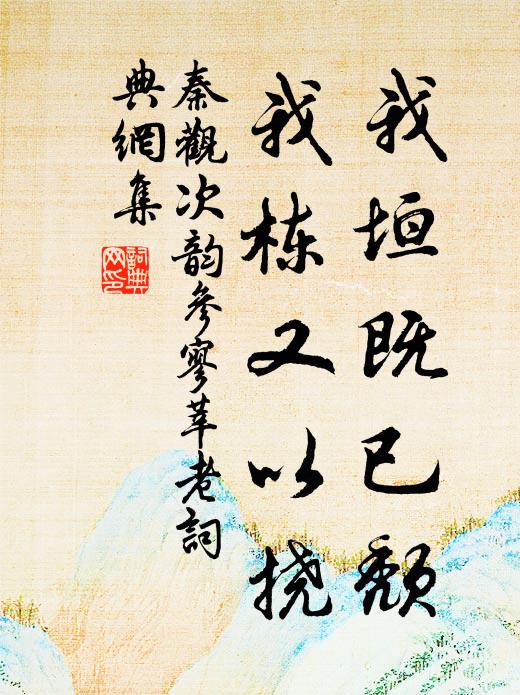 我垣既已颓
我栋又以挠
秦觀次韵參寥莘老詞
典網集
詞典
网印